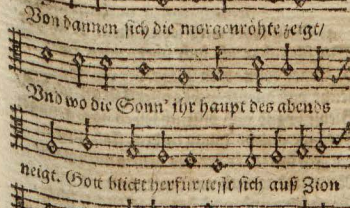 Von dannen sich die morgenröhte zeigt/
Vnd wo die Sonn' jhr haupt des abends
neigt. Gott blickt herfür/lesst sich auß Zion